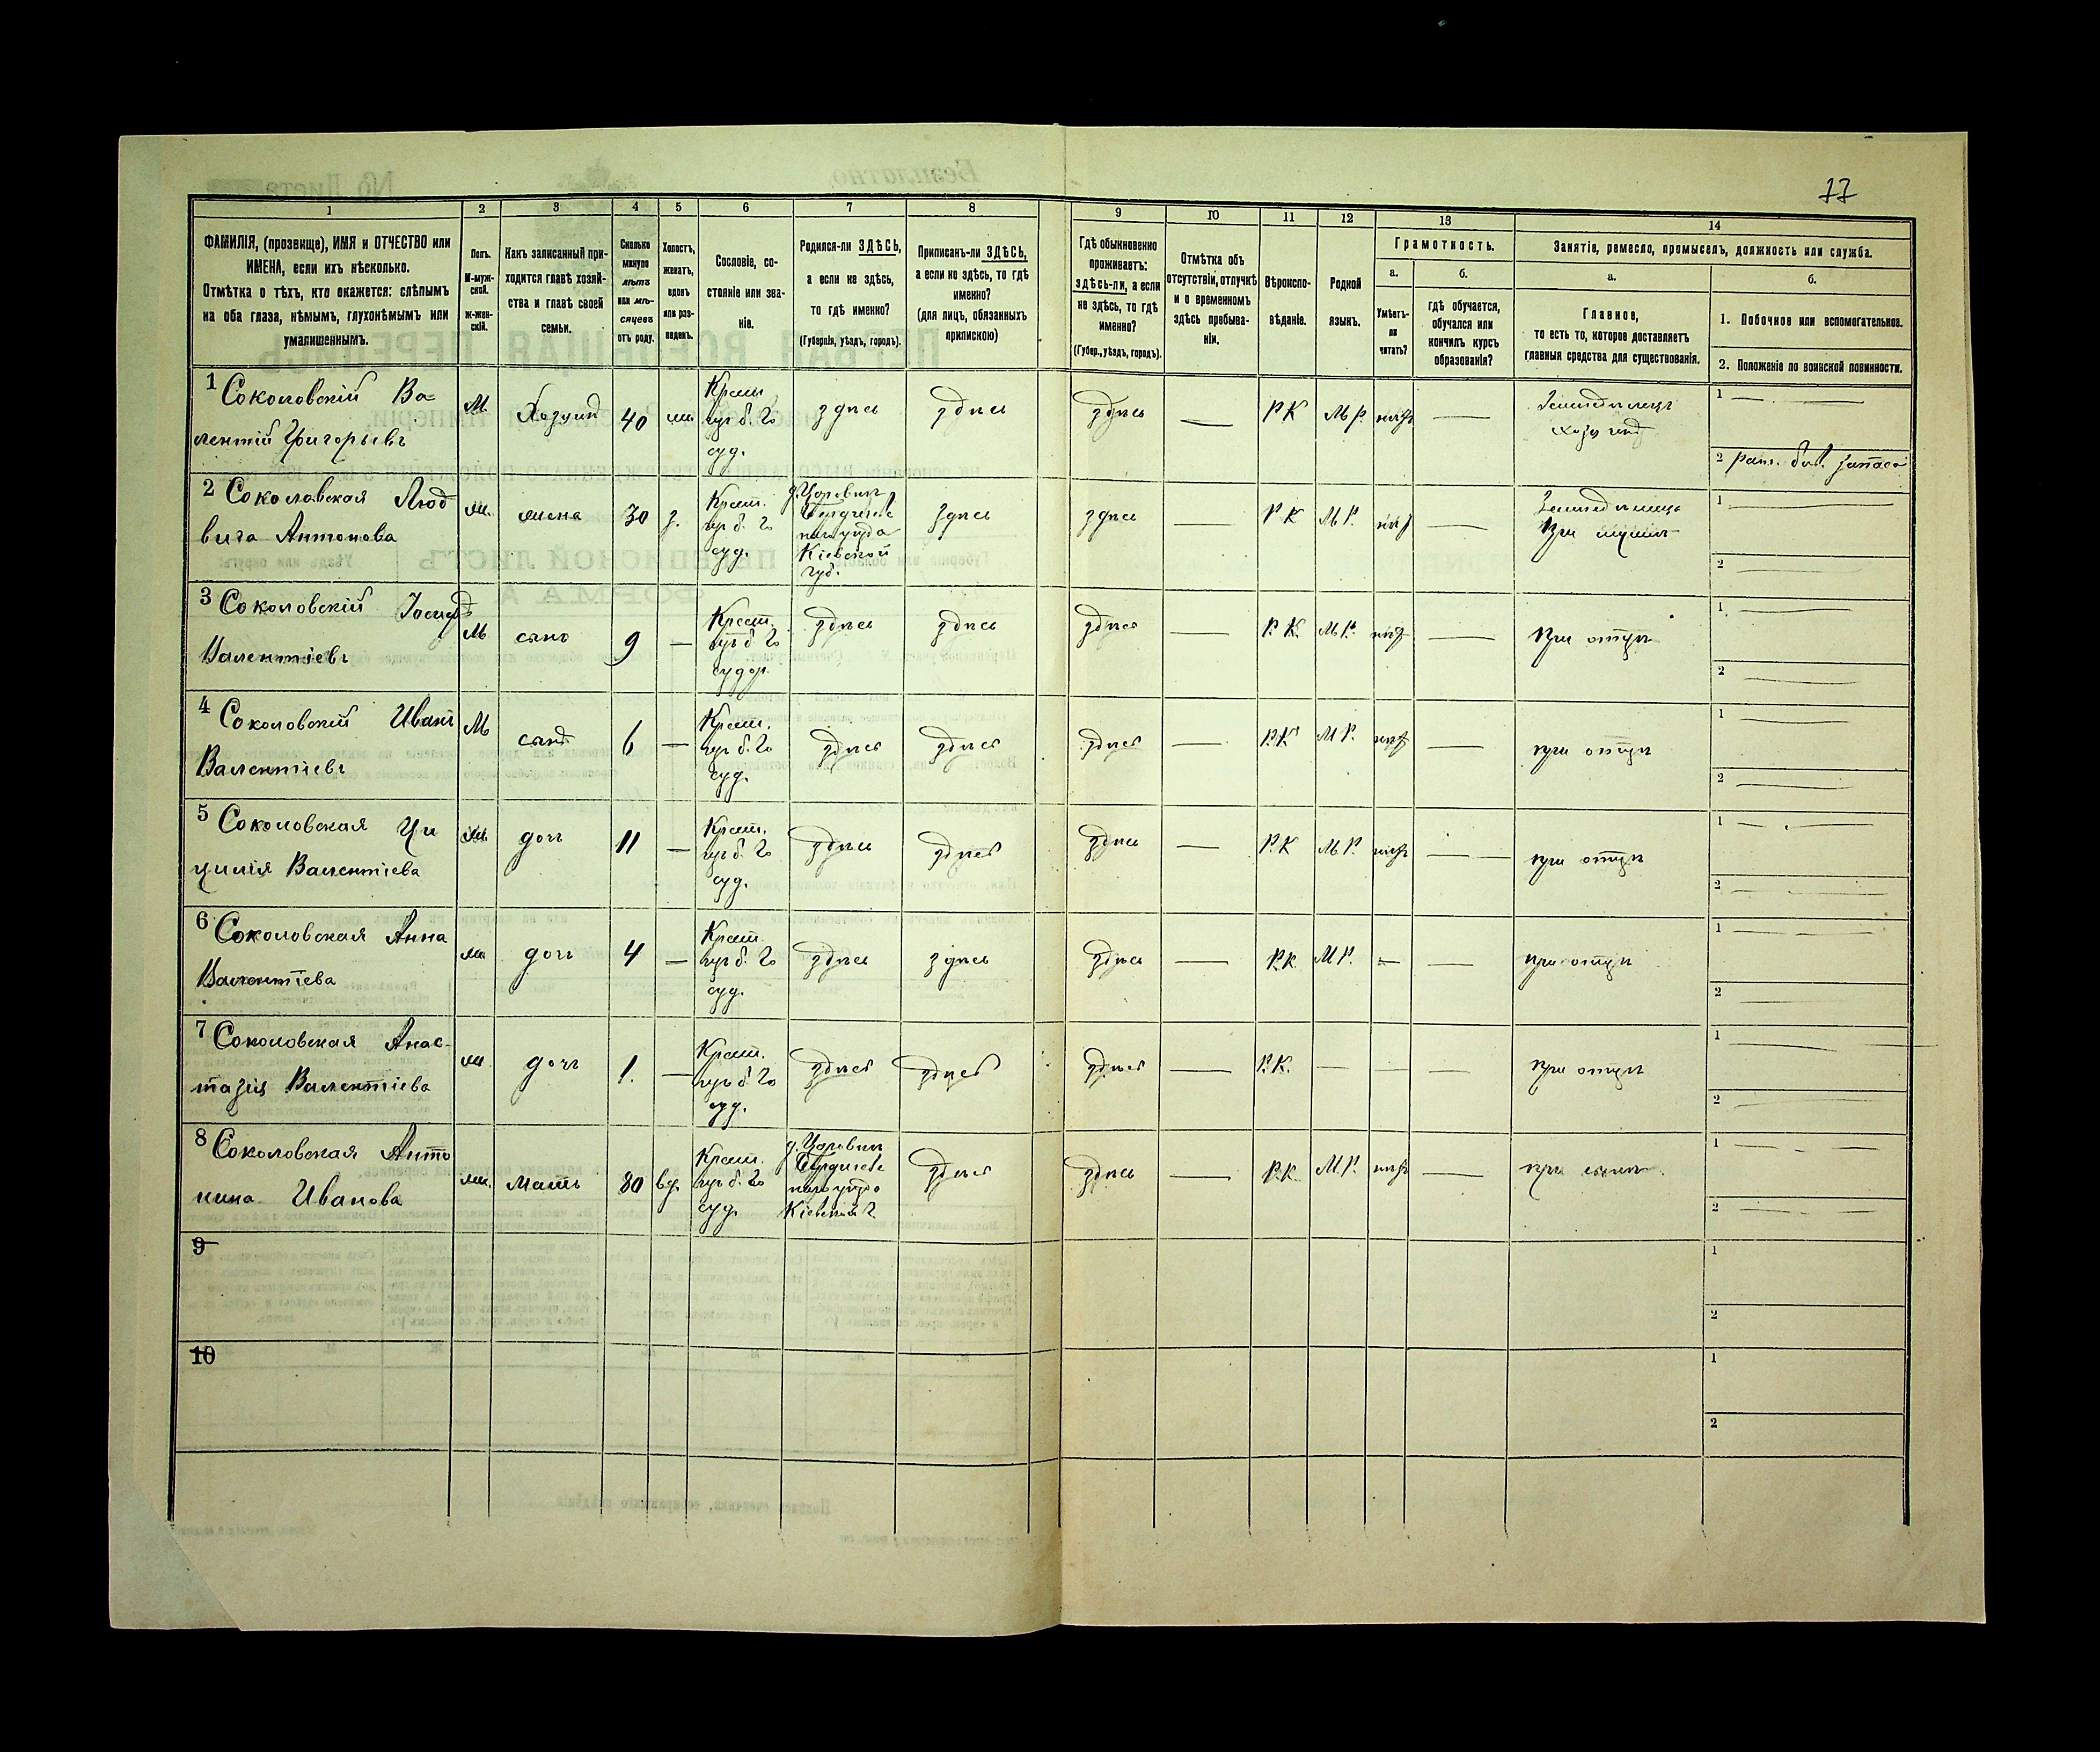 17
1
2
3
4
5
6
7
8
9
10
11
12
13
14
ФАМИЛІЯ, (прозвище), ИМЯ и ОТЧЕСТВО или
ИМЕНА, если ихъ нѣсколько.
Отмѣтка о тѣхъ, кто окажется: слѣпымъ
на оба глаза, нѣмымъ, глухонѣмымъ или
умалишеннымъ.
Полъ.
М-муж-
ской.
Ж-жен-
скій.
Какъ записанный при-
ходится главѣ хозяй-
ства и главѣ своей
семьи.
Сколько
минуло
лѣтъ
или мѣ-
сяцевъ
отъ роду.
Холостъ,
женатъ,
вдовъ
или раз-
веденъ.
Сословіе, со-
стояніе или зва-
ніе.
Родился-ли ЗДѢСЬ,
а если не здѣсь,
то гдѣ именно?
(Губернія, уѣздъ, городъ).
Приписанъ-ли ЗДѢСЬ,
а если не здѣсь, то гдѣ
именно?
(для лицъ, обязанныхъ
припискою)
Гдѣ обыкновенно
проживаетъ:
здѣсь-ли, а если
не здѣсь, то гдѣ
именно?
(Губер., уѣздъ, городъ).
Отмѣтка объ
отсутствіи, отлучкѣ
и о временномъ
здѣсь пребыва-
ніи.
Вѣроиспо-
вѣданіе.
Родной
языкъ.
Грамотность.
а.
Умѣетъ-
ли
читать?
б.
гдѣ обучается,
обучался или
кончилъ курсъ
образованія?
Занятіе, ремесло, промыселъ, должность или служба.
а.
Главное,
то есть то, которое доставляетъ
главныя средства для существованія.
б.
1. Побочное или вспомогательное.
2. Положеніе по воинской повинности.
1 Соколовскій Ва=
лентій Григорьевъ
М.
Хозяинъ
40
ж.
Крест.
изъ б. 2о
суд.
здѣсь
здѣсь
здѣсь
—
Р К
М Р.
нѣтъ
—
Земледѣлецъ
хозяинъ
1 —
2 ратн. запаса
2 Соколовская Люд
вига Антонова
ж.
жена
30
з.
Крест.
изъ б. 2о
суд.
Кіевской
губ.
здѣсь
здѣсь
—
Р К
М Р.
нѣтъ
—
При мужѣ
1 —
2 —
3 Соколовскій Іосифъ
Валентіевъ
М
сынъ
9
—
Крест.
изъ б. 2о
здѣсь
здѣсь
здѣсь
—
Р. К.
М Р.
нѣтъ
—
При отцѣ
1 —
2 —
4 Соколовскій Иванъ
Валентіевъ
М
сынъ
6
—
Крест.
изъ б. 2о
суд.
здѣсь
здѣсь
здѣсь
—
Р К
М Р.
нѣтъ
—
при отцѣ
1 —
2 —
5 Соколовская Ци
цилія Валентіева
ж.
дочь
11
—
Крест.
изъ б. 2о
суд.
здѣсь
здѣсь
здѣсь
—
Р. К
М. Р.
нѣтъ
—
при отцѣ
1 —
2 —
6 Соколовская Анна
Валентіева
ж
дочь
4
—
Крест.
изъ б. 2о
суд.
здѣсь
здѣсь
здѣсь
—
Р. К
М Р.
—
—
при отцѣ
1 —
2 —
7 Соколовская Анас-
тазія Валентіева
ж
дочь
1.
—
Крест.
изъ б. 2о
суд.
здѣсь
здѣсь
здѣсь
—
Р. К.
—
—
—
при отцѣ
1 —
2 —
8 Соколовская Анто
нина Иванова
ж.
мать
80
вд.
Крест.
изъ б. 2о
суд.
Кіевской г.
здѣсь
здѣсь
—
Р. К.
М. Р.
нѣтъ
—
при сынѣ
1 —
2 —
9
1
2
10
1
2